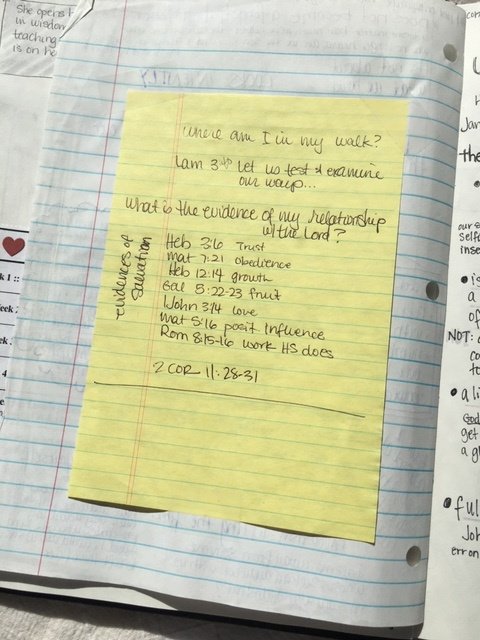 She opens
in wisdom
teaching
is on he
where am I in my walk?
Lam 3:40 Let us test & examine
our ways...
what is the evidence of my relationship
w/the Lord?
evidences of
salvation
Heb 3:6 Trust
Mat 7:21 obedience
Heb 12:14 growth
Gal 5:22-23 fruit
1John 3:14 love
Mat 5:16 posit Influence
Rom 8:15-16 work HS does
2 COR 11:28-31
k 1 ::
Jan
the
our s
self
inse
is
a
of
NOT:
co
to
a li
God
get
a g
ful
Joh
error